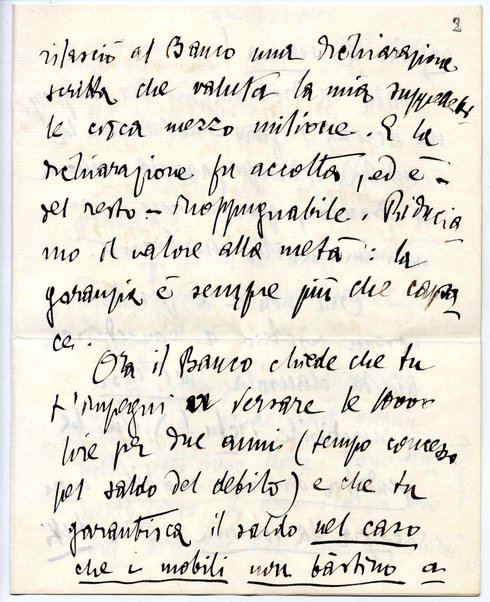 2
rilasciò al Banco una dichiarazione
scritta che valuta la mia suppellet-
tile circa mezzo milione. E la
dichiarazione fu accolta, ed è -
del resto - inoppugnabile. Riducia-
mo il valore alla metà: la
garanzia è sempre più che capa-
ce.
Ora il Banco chiede che tu
t'impegni a versare le
lire per due anni (tempo concesso
pel saldo del debito) e che tu
garantisca il saldo nel caso
che i mobili non bastino a